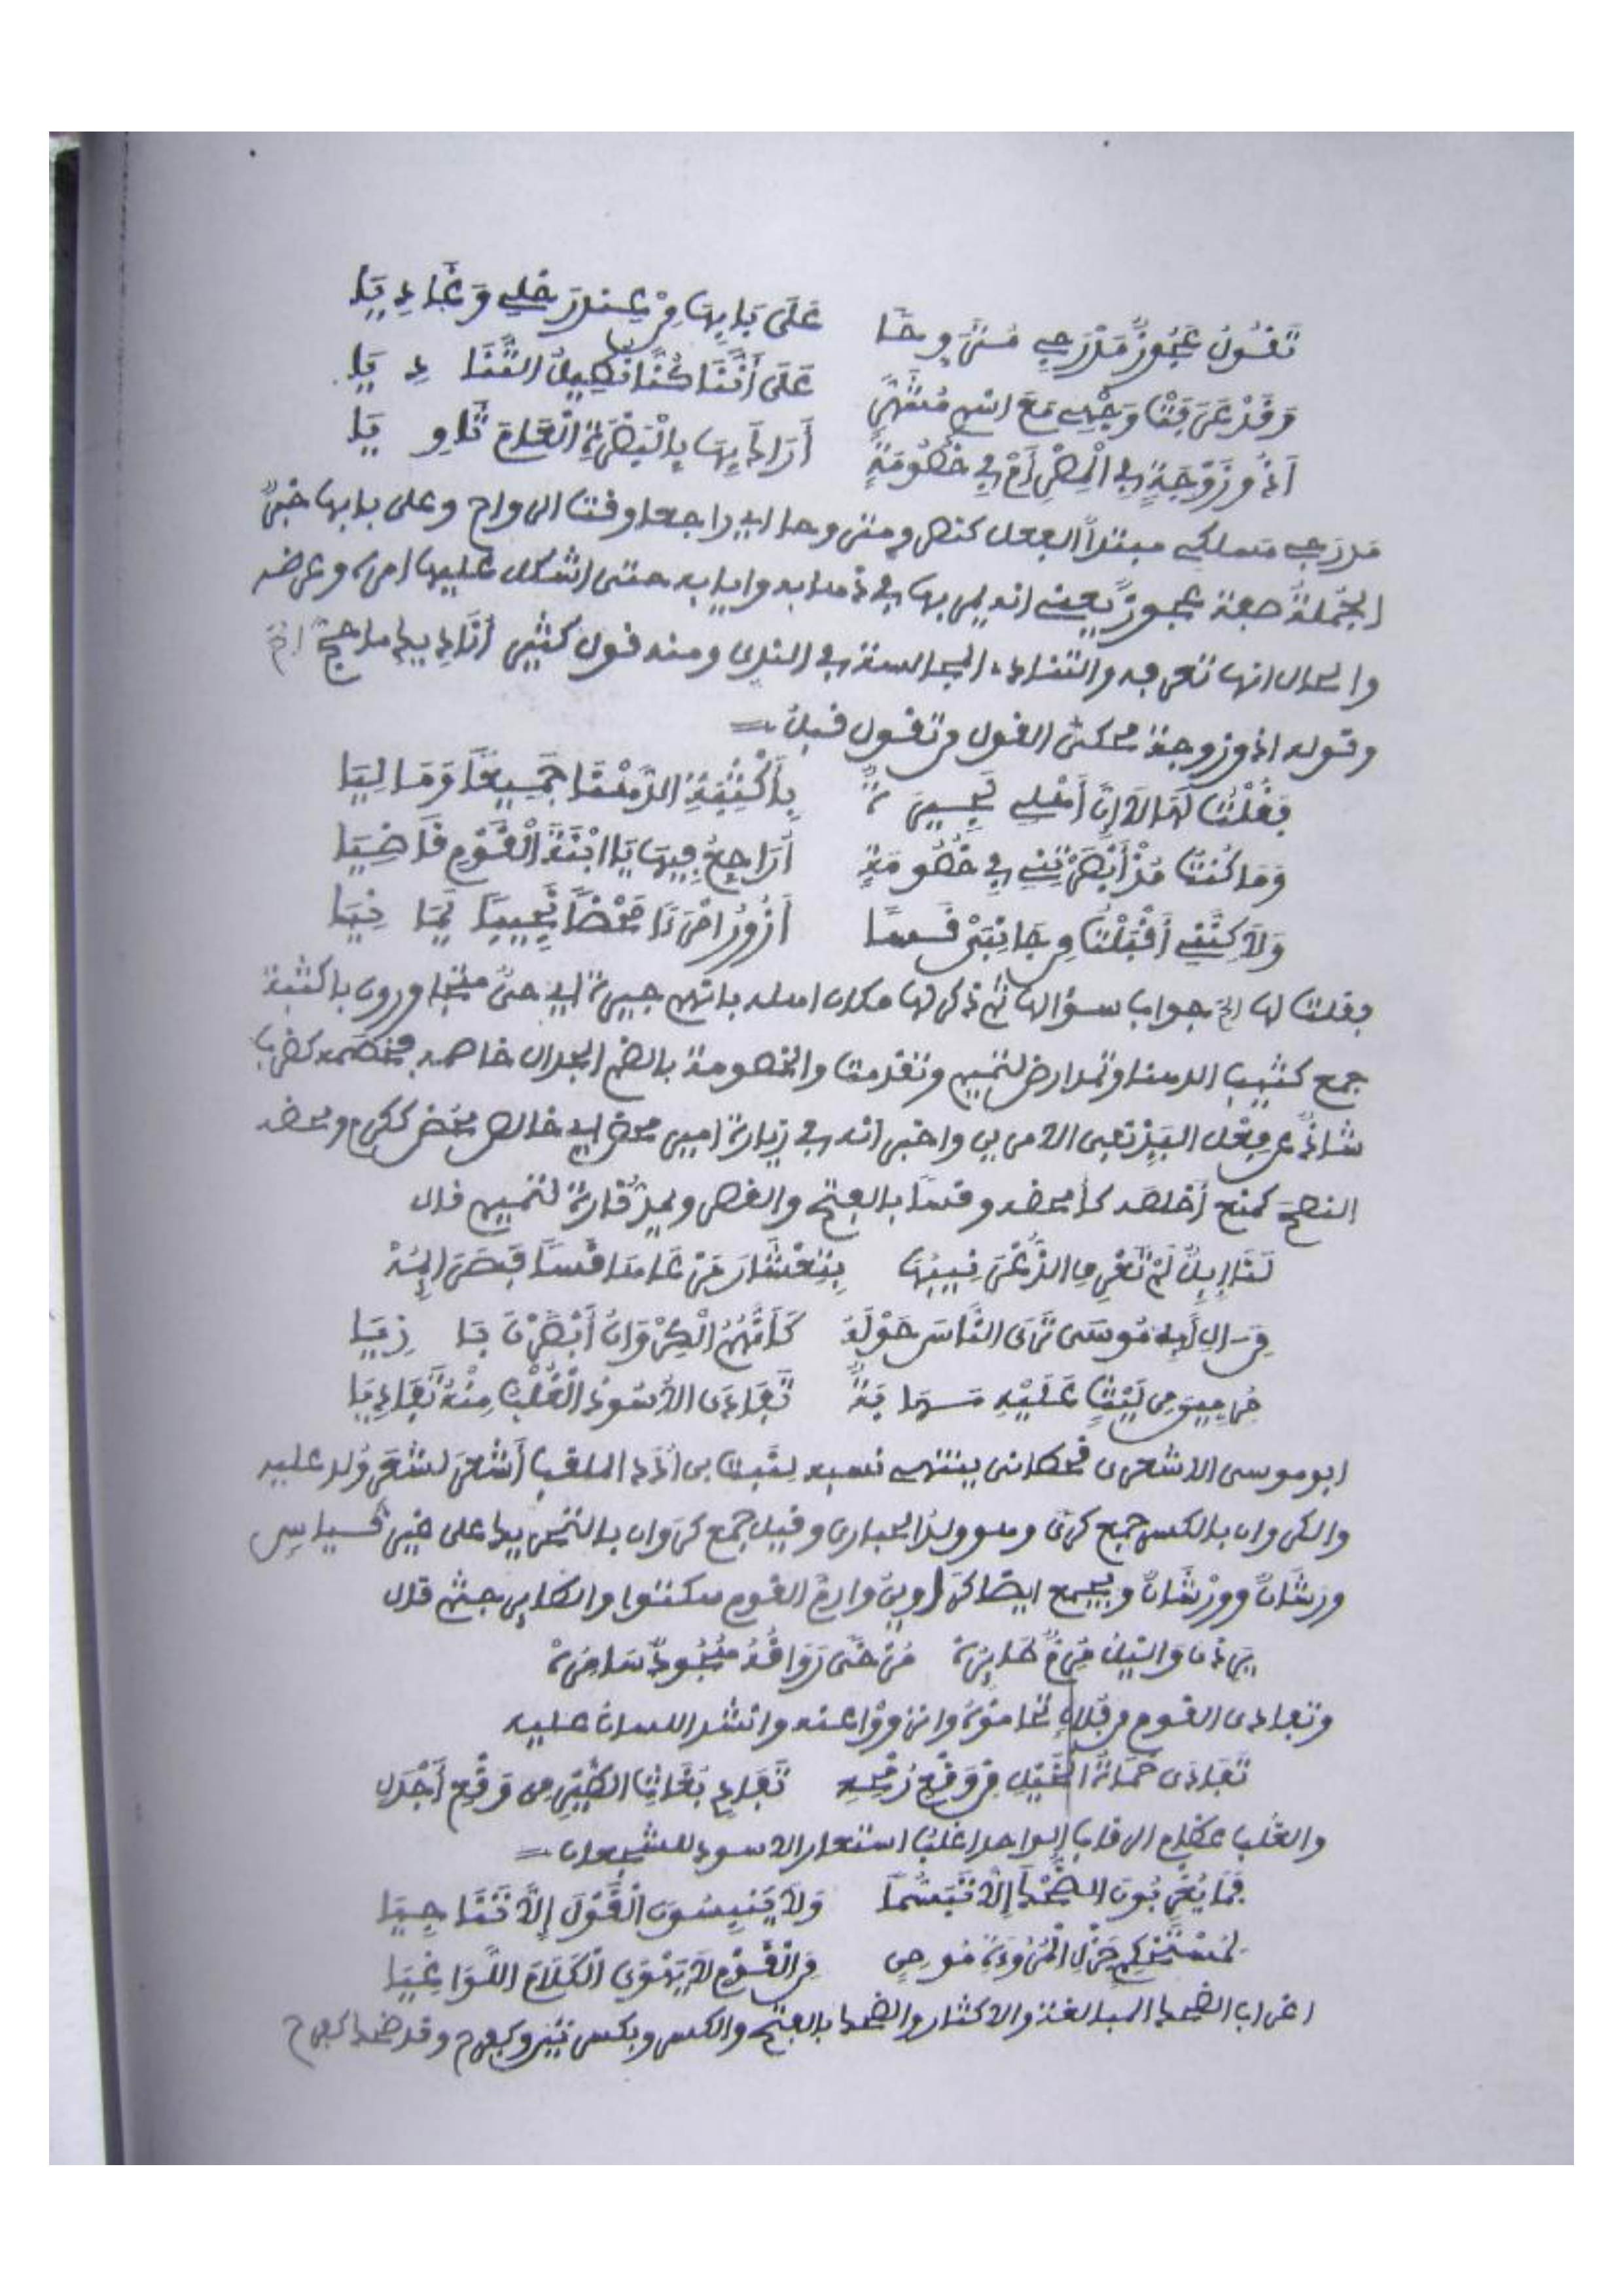 تَقُولُ عَجُوزٌ مَدْرَجِي مُتَرَوِّحًا عَلَى بَابِهَا مِنْ عِنْدِ رَحْلِي وَغَادِيَا
وَقَدْ عَرَفَتْ وَجْهِي مَعَ اسْمٍ مُشَهَّرٍ عَلَى أَنَّنَا كُنَّا نُطِيلُ التَّنَادِيَا
أَذُو زَوْجَةٍ فِي الْمِصْرِ أَمْ فِي خُصُومَةٍ أَرَاكَ بِهَا بِالْبَصْرَةِ الْعَامَ ثَاوِيَا
مدرجي مسلكي مبتدأ الفعل كنصر ومتروحا اي راجعا وقت الرواح وعلى بابها خبر
الجملة صفة عجوز يعني انه يمر بها في ذهابه وايابه حتى اشكل عليها امره وعرضه
والحال انها تعرفه والتنادي المجالسة في الندى ومنه قول كثير أنادِيك ما حج الخ
وقوله اذو زوجة محكي القول من تقول قبل
فَقُلْتُ لَهَا لَا إِنَّ أَهْلِي لَجِيرَةٌ بِأَكْثِبَةِ الدَّهْنَا جَمِيعًا وَمَالِيَا
وَمَا كُنْتُ مُذْ أَبْصَرْتِنِي فِي خُصُومَةٍ أُرَاجِعُ فِيهَا يَا ابْنَةَ الْقَوْمِ قَاضِيَا
وَلَاكِنَّنِي أَقْبَلْتُ مِنْ جَانِبَيْ قَسًا أَزُورُ امْرَءًا مَحْضًا نَجِيبًا يَمَانِيَا
فقلت لها الخ جواب سؤالها ثم ذكر لها مكان اهله بانهم جيرة اي حي متجاورون باكثبة
جمع كثيب الدهناوتمد ارض لتميم وتقدمت والخصومة بالضم الجدال خاصمه فخصمه كضرب
شاذ واخبر انه في زيارة امير محض اي خالص محض ككرم ومحضه
النصح كمنع أخلصه كأمحضه وقسا بالفتح والقصر ويمد قارة لتميم قال
لَنَا إِبِلٌ لَمْ تَعْرِفِ الذُّعْرَ نِيبُهَا بِتِعْشَارَ مَرْعَاهَا قَسًا فَصَرَائِمُهْ
مِنَ الِ أَبِي مُوسَى تَرَى النَّاسَ حَوْلَهُ كَأَنَّهُمُ الْكِرْوَانُ أَبْصَرْنَ بَازِيَا
مُرِمِّينَ مِنْ لَيْثٍ عَلَيْهِ مَهَابَةٌ تَفَادَى الْأُسُودُ الْغُلْبُ مِنْهُ تَفَادِيَا
ابو موسى الاشعري قحطاني ينتهي نسبه لنبت بن أدد الملقب أشعر لشعر وُلد عليه
والكروان بالكسر جمع كرى وهو ولد الحبارى وقيل جمع كروان بالتحريك على غير قياس
ورشان وورشان ويجمع ايضا كراوين وارم القوم سكتوا والكابي جثم قال
يَرِدْنَ وَالليلُ مُرِمٌّ طَائِرُهْ مُرْخًى رَوَاقُهُ هُجُودٌ سَامِرُهْ
وتفادى القوم من فلان تحاموه وانزووا عنه وانشد اللسان عليه
تَفَادَى حُمَاةُ الْخَيْلِ مِنْ وَقْعِ رُمْحِهِ تَفَادِي بُغَاثِ الطَّيْرِ مِنْ وَقْعِ أَجْدَلِ
والغلب عظام الرقاب الواحد اغلب استعار الاسود للشجعان
فَمَا يُغْرِبُونَ الضِّحْكَ إِلَّا تَبَسُّمًا وَلَا يَنْبِسُونَ الْقَوْلَ إِلَّا تَنَاجِيَا
لَدَى الْقَوْمِ لَا يَهْوَى الْكَلَامَ اللَّوَاغِيَا
اغراب الضحك المبالغة والاكثار والضحك بالفتح والكسر وبكسرتين وكفرح وقد ضحك كفرح